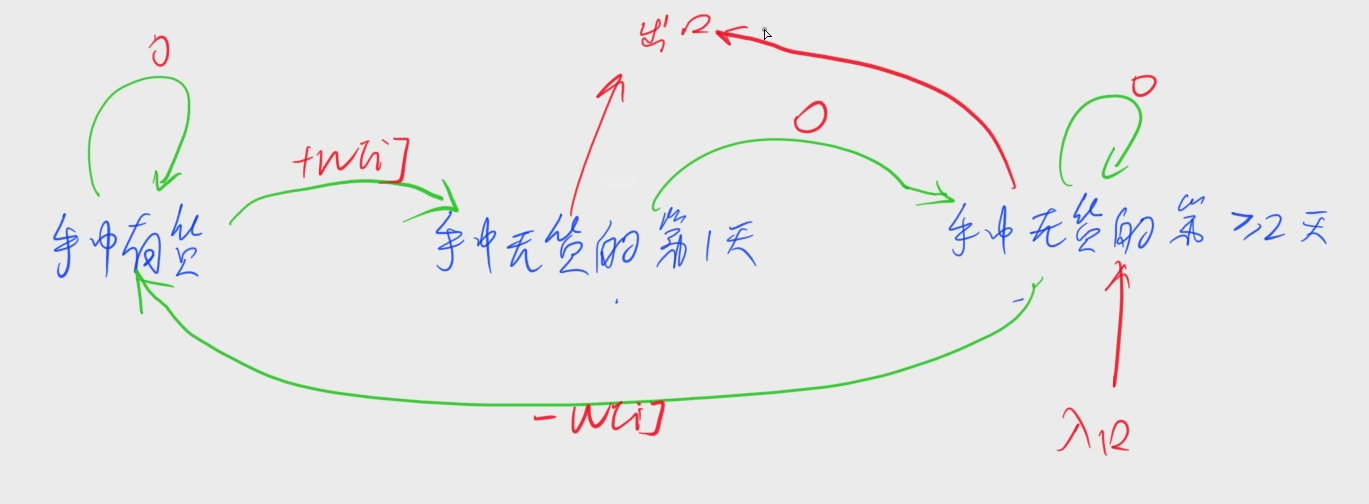 出口
0
0
0
+W[i]
手中有货
手中无货的第1天
手中无货的第≥2天
-W[i]
入口